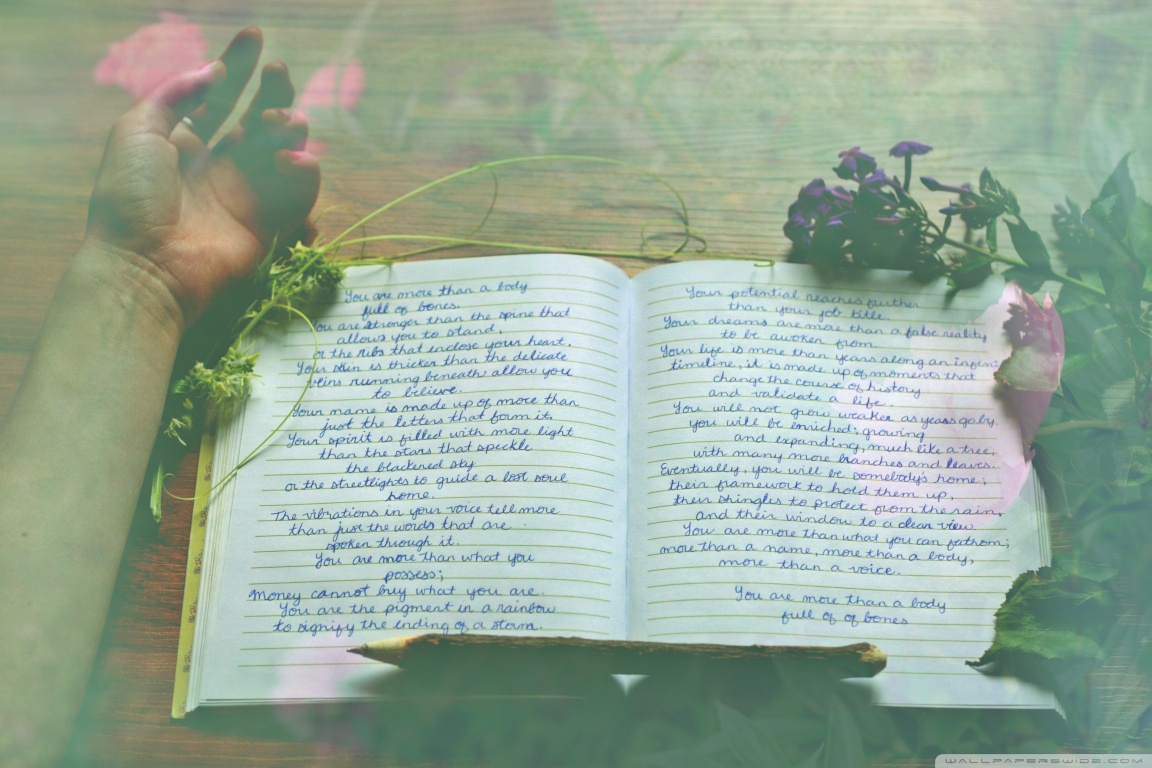 You are more than a body
full of bones.
You are stronger than the spine that
allows you to stand,
or the ribs that enclose your heart.
Your skin is thicker than the delicate
veins running beneath allow you
to believe.
Your name is made up of more than
just the letters that form it,
Your spirit is filled with more light
than the stars that speckle
the blackened sky
or the streetlights to guide a lost soul
home.
The vibrations in your voice tell more
than just the words that are
spoken through it.
You are more than what you
possess;
Money cannot buy what you are.
You are the pigment in a rainbow
to signify the ending of a storm.
Your potential reaches further
than your job title.
Your dreams are more than a false reality
to be awoken from.
Your life is more than years along an infinite
timeline, it is made up of moments that
change the course of history
and validate a life.
You will not grow weaker as years go by.
you will be enriched: growing
and expanding, much like a tree,
with many more branches and leaves.
Eventually, you will be somebody's home;
their framework to hold them up,
their shingles to protect from the rain,
and their window to a clear view.
You are more than what you can fathom;
more than a name, more than a body,
more than a voice.
You are more than a body
full of of bones
WALLPAPERSWIDE.COM